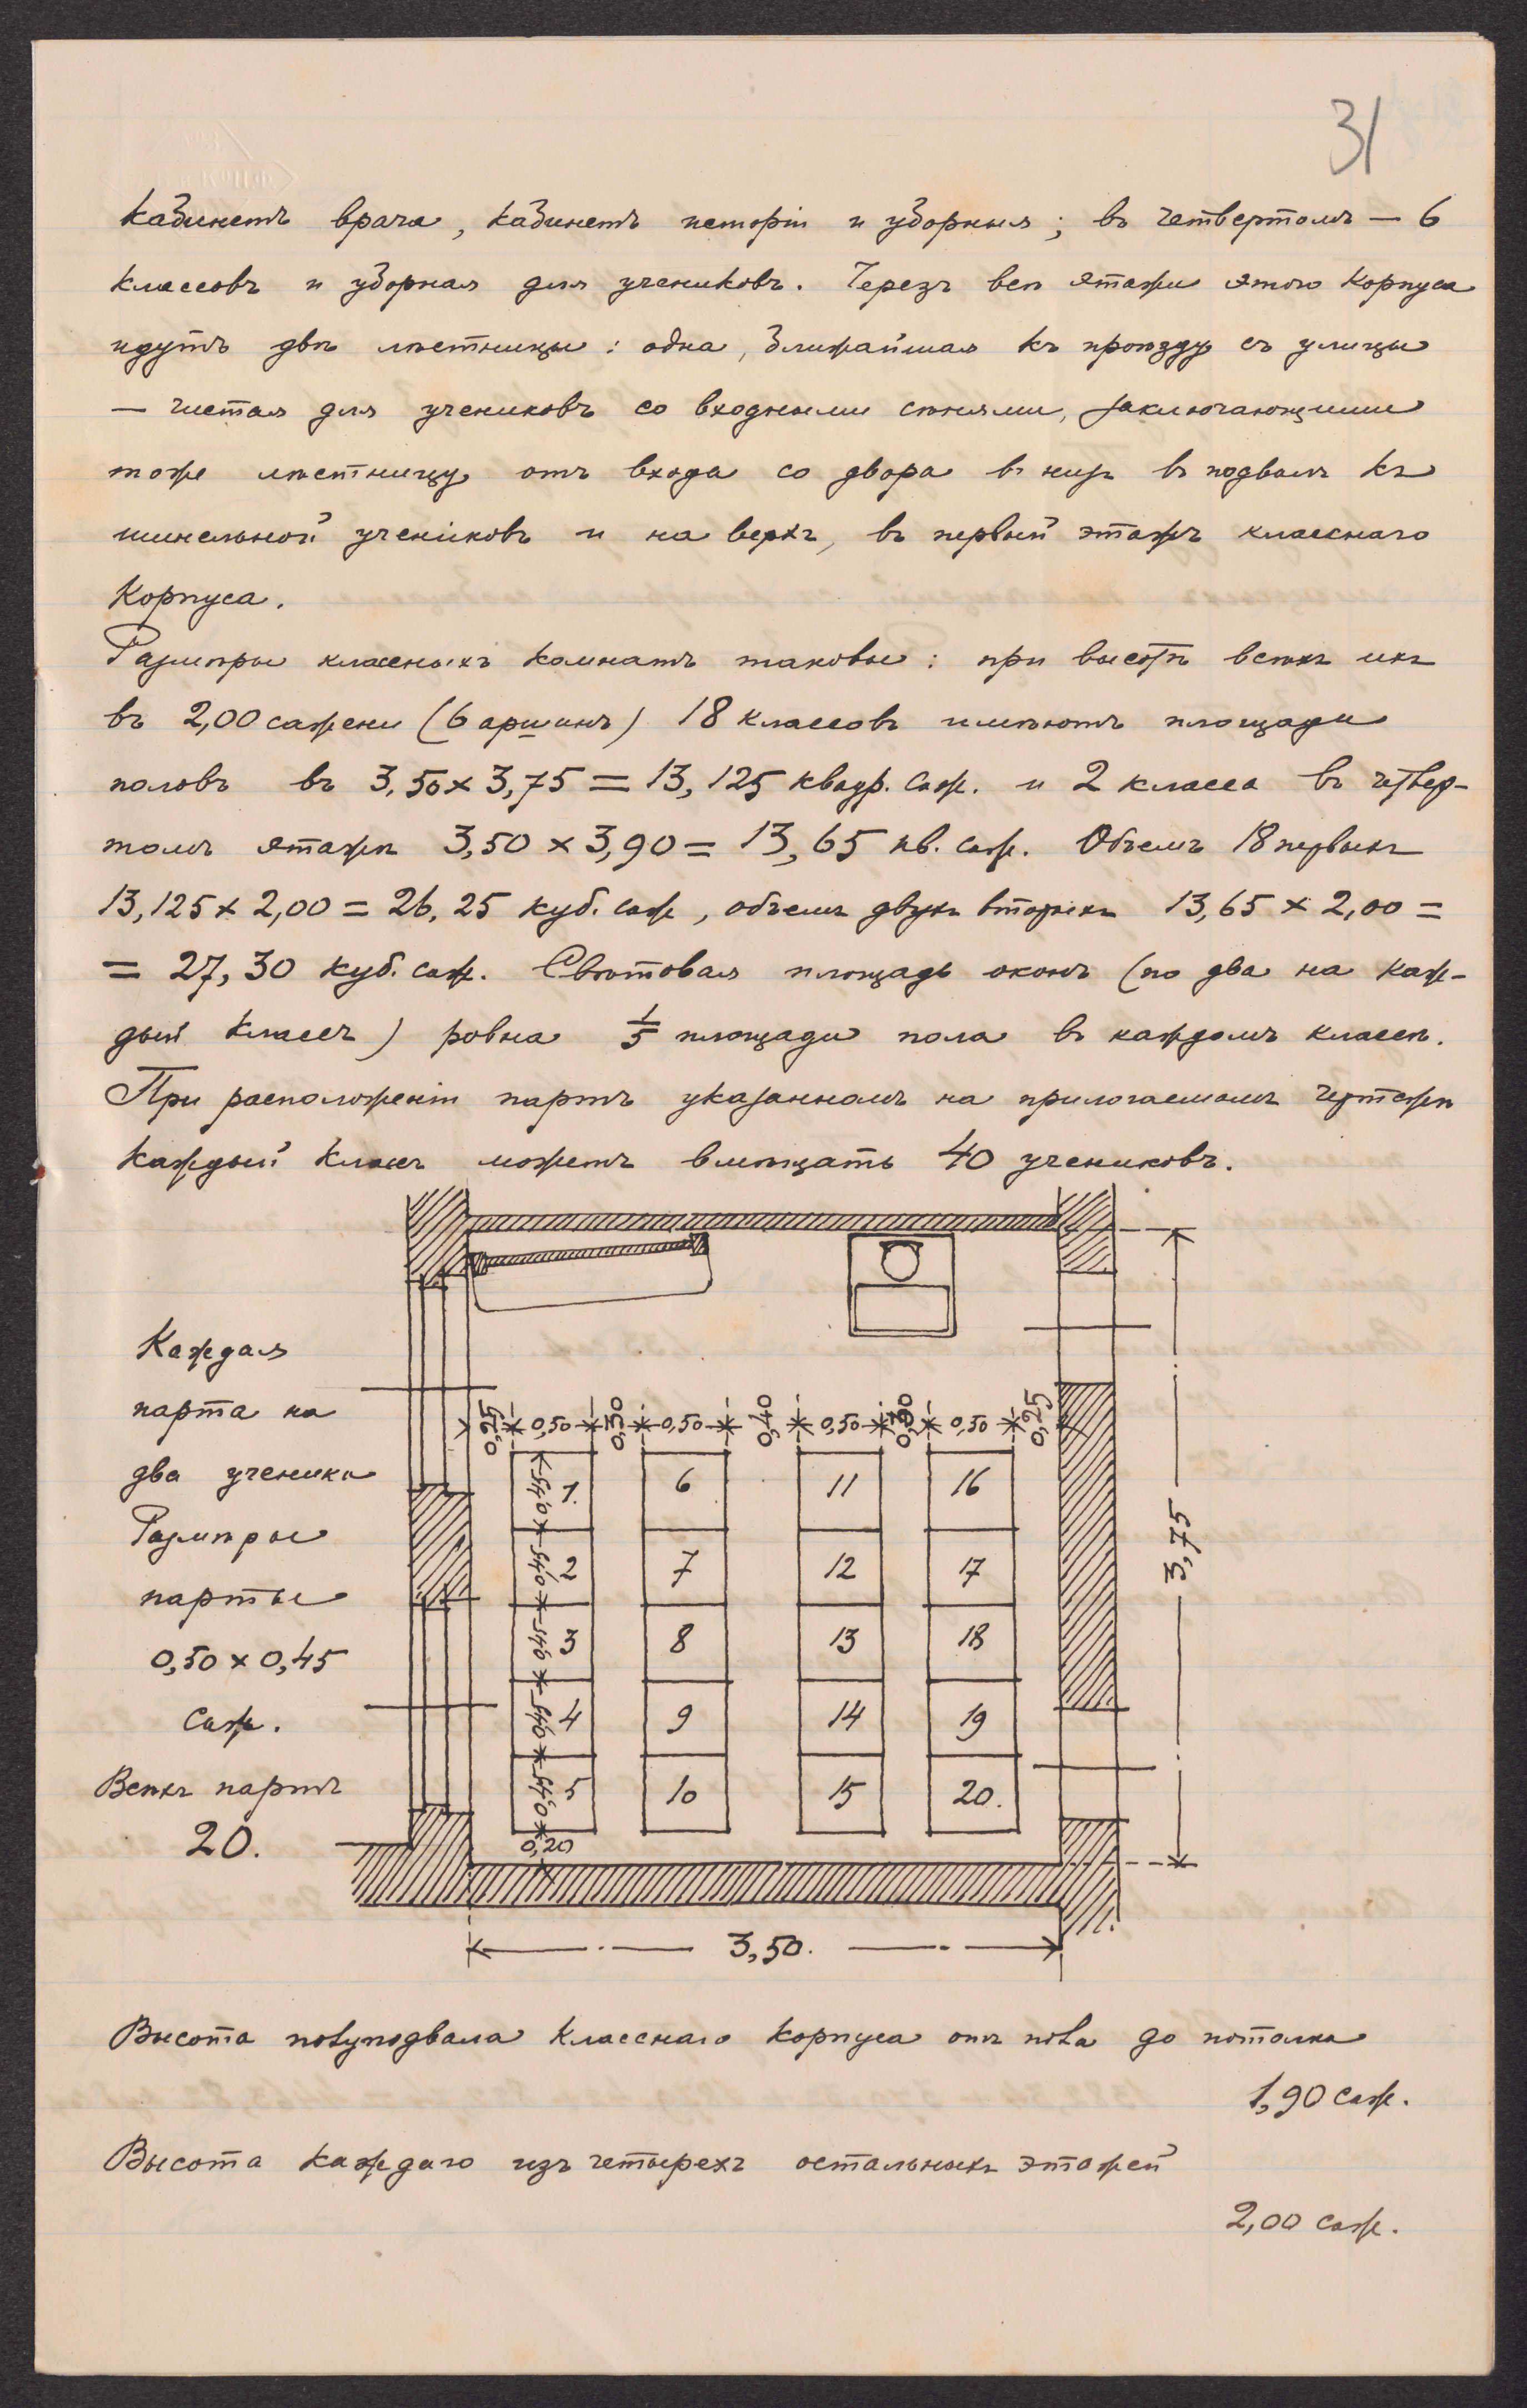 31
кабинетъ врача, кабинетъ исторіи и уборныя; въ четвертомъ — 6
классовъ и уборная для учениковъ. Черезъ всѣ этажи этого корпуса
идутъ двѣ лѣстницы: одна, ближайшая къ проѣзду съ улицы
— чистая для учениковъ со входными сѣнями, заключающими
тоже лѣстницу отъ входа со двора в низъ въ подвалъ къ
шинельной учениковъ и на верхъ, въ первый этажъ класснаго
корпуса.
Размѣры классныхъ комнатъ таковы: при высотѣ всѣхъ ихъ
въ 2,00 сажени (6 аршинъ) 18 классовъ имѣютъ площади
половъ въ 3,50 × 3,75 = 13,125 квадр. саж. и 2 класса въ четвер-
томъ этажѣ 3,50 × 3,90 = 13,65 кв. саж. Объемъ 18 первыхъ
13,125 × 2,00 = 26,25 куб. саж, объемъ двухъ вторыхъ 13,65 × 2,00 =
= 27,30 куб. саж. Свѣтовая площадь оконъ (по два на каж-
дый классъ) ровна 1/5 площади пола въ каждомъ классѣ.
При расположеніи партъ указанномъ на прилагаемомъ чертежѣ
каждый классъ можетъ вмѣщать 40 учениковъ.
Каждая
парта на
два ученика
Размѣры
парты
0,50 × 0,45
саж.
Всѣхъ партъ
20.
0,25 0,50 0,30 0,50 0,40 0,50 0,30 0,50 0,25
0,45 1. 6 11 16
0,45 2 7 12 17
0,45 3 8 13 18
0,45 4 9 14 19
0,45 5 10 15 20.
0,20
3,75
3,50.
Высота полуподвала класснаго корпуса отъ пола до потолка
1,90 саж.
Высота каждаго изъ четырехъ остальныхъ этажей
2,00 саж.